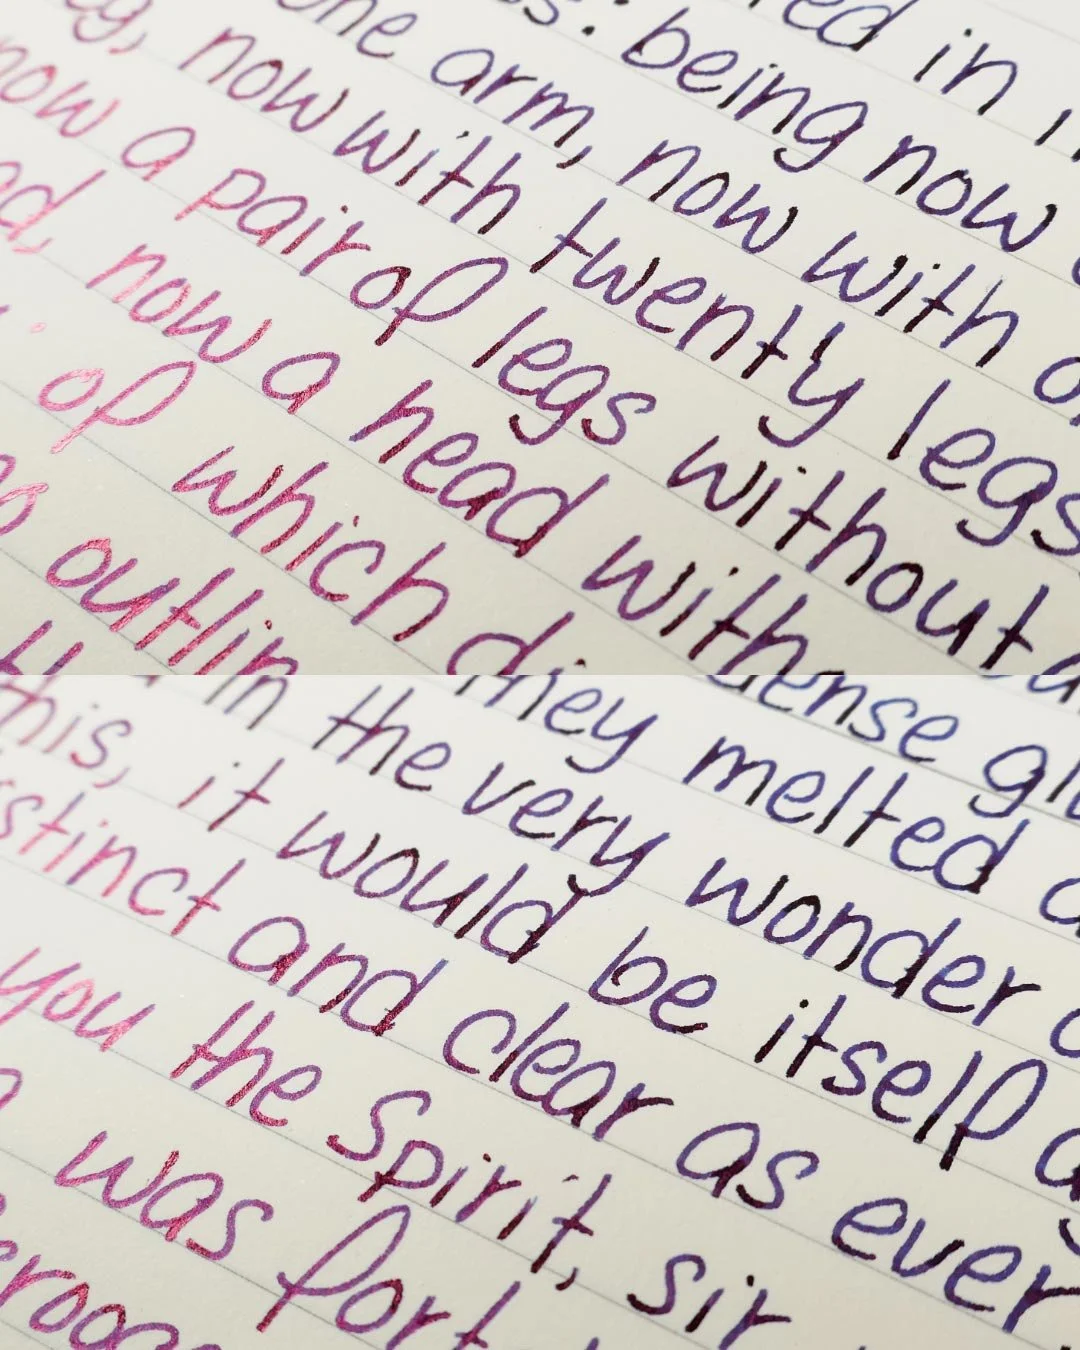 ed in
s: being now
ne arm, now with
eg, now with twenty legs
now a pair of legs without
ed, now a head with
of which
outlin
dense
they melted
in the very wonder
this, it would be itself
stinct and clear as ever
you the Spirit, sir
was fort